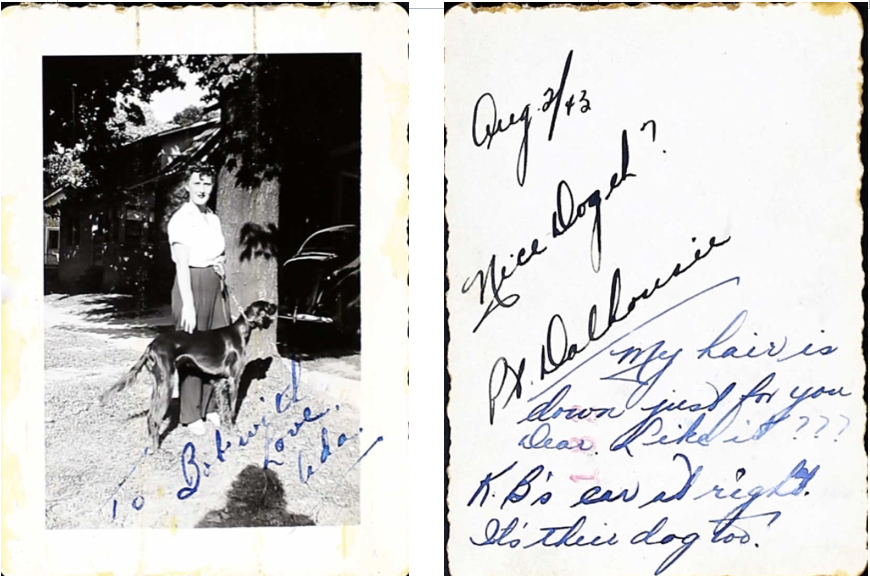 To Bab with
Love.
Ada.
Aug. 2/43
Nice Dog eh?
Pt. Dalhousie
My hair is
down just for you
Dear. Like it???
K.B's car at right.
It's their dog too!